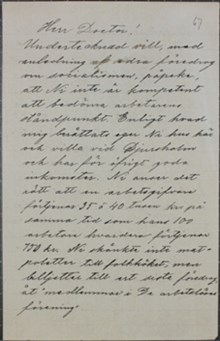 69
Herr Doctor!
Undertecknad vill, med
anledning af edra föredrag
om socialismen, påpeka
att Ni inte är kompetent
att bedöma arbetarens
ståndpunkt. Enligt hvad
mig berättats eger Ni hus här
och villa vid Djursholm
och har för öfrigt goda
inkomster. Ni anser det
rätt att en arbetsgifvare
förtjenar 35 à 40 tusen kr på
samma tid som hans 100
arbetare hvardera förtjenar
750 kr. Ni skänkte inte mat-
poletter till folkköket, men
biljetter till ert sista föredrag
åt medlemmar i De arbetslösas
förening